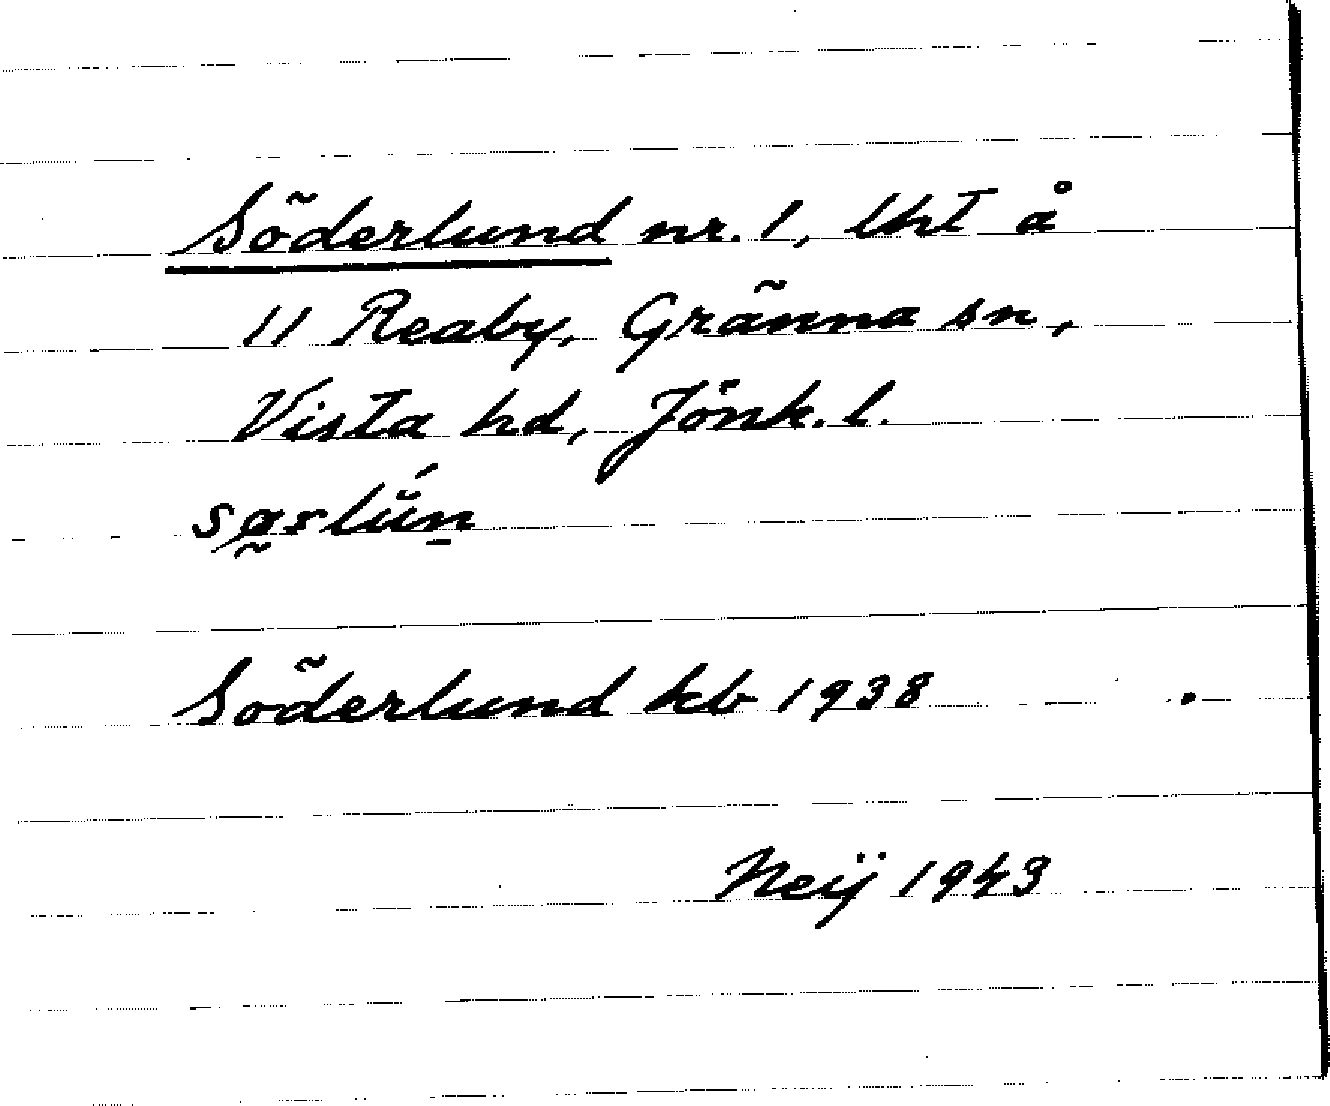 Söderlund nr. 1, lht å
11 Reaby, Gränna sn,
Vista hd, Jönk. l.
Söderlund kb 1938
Neij 1943